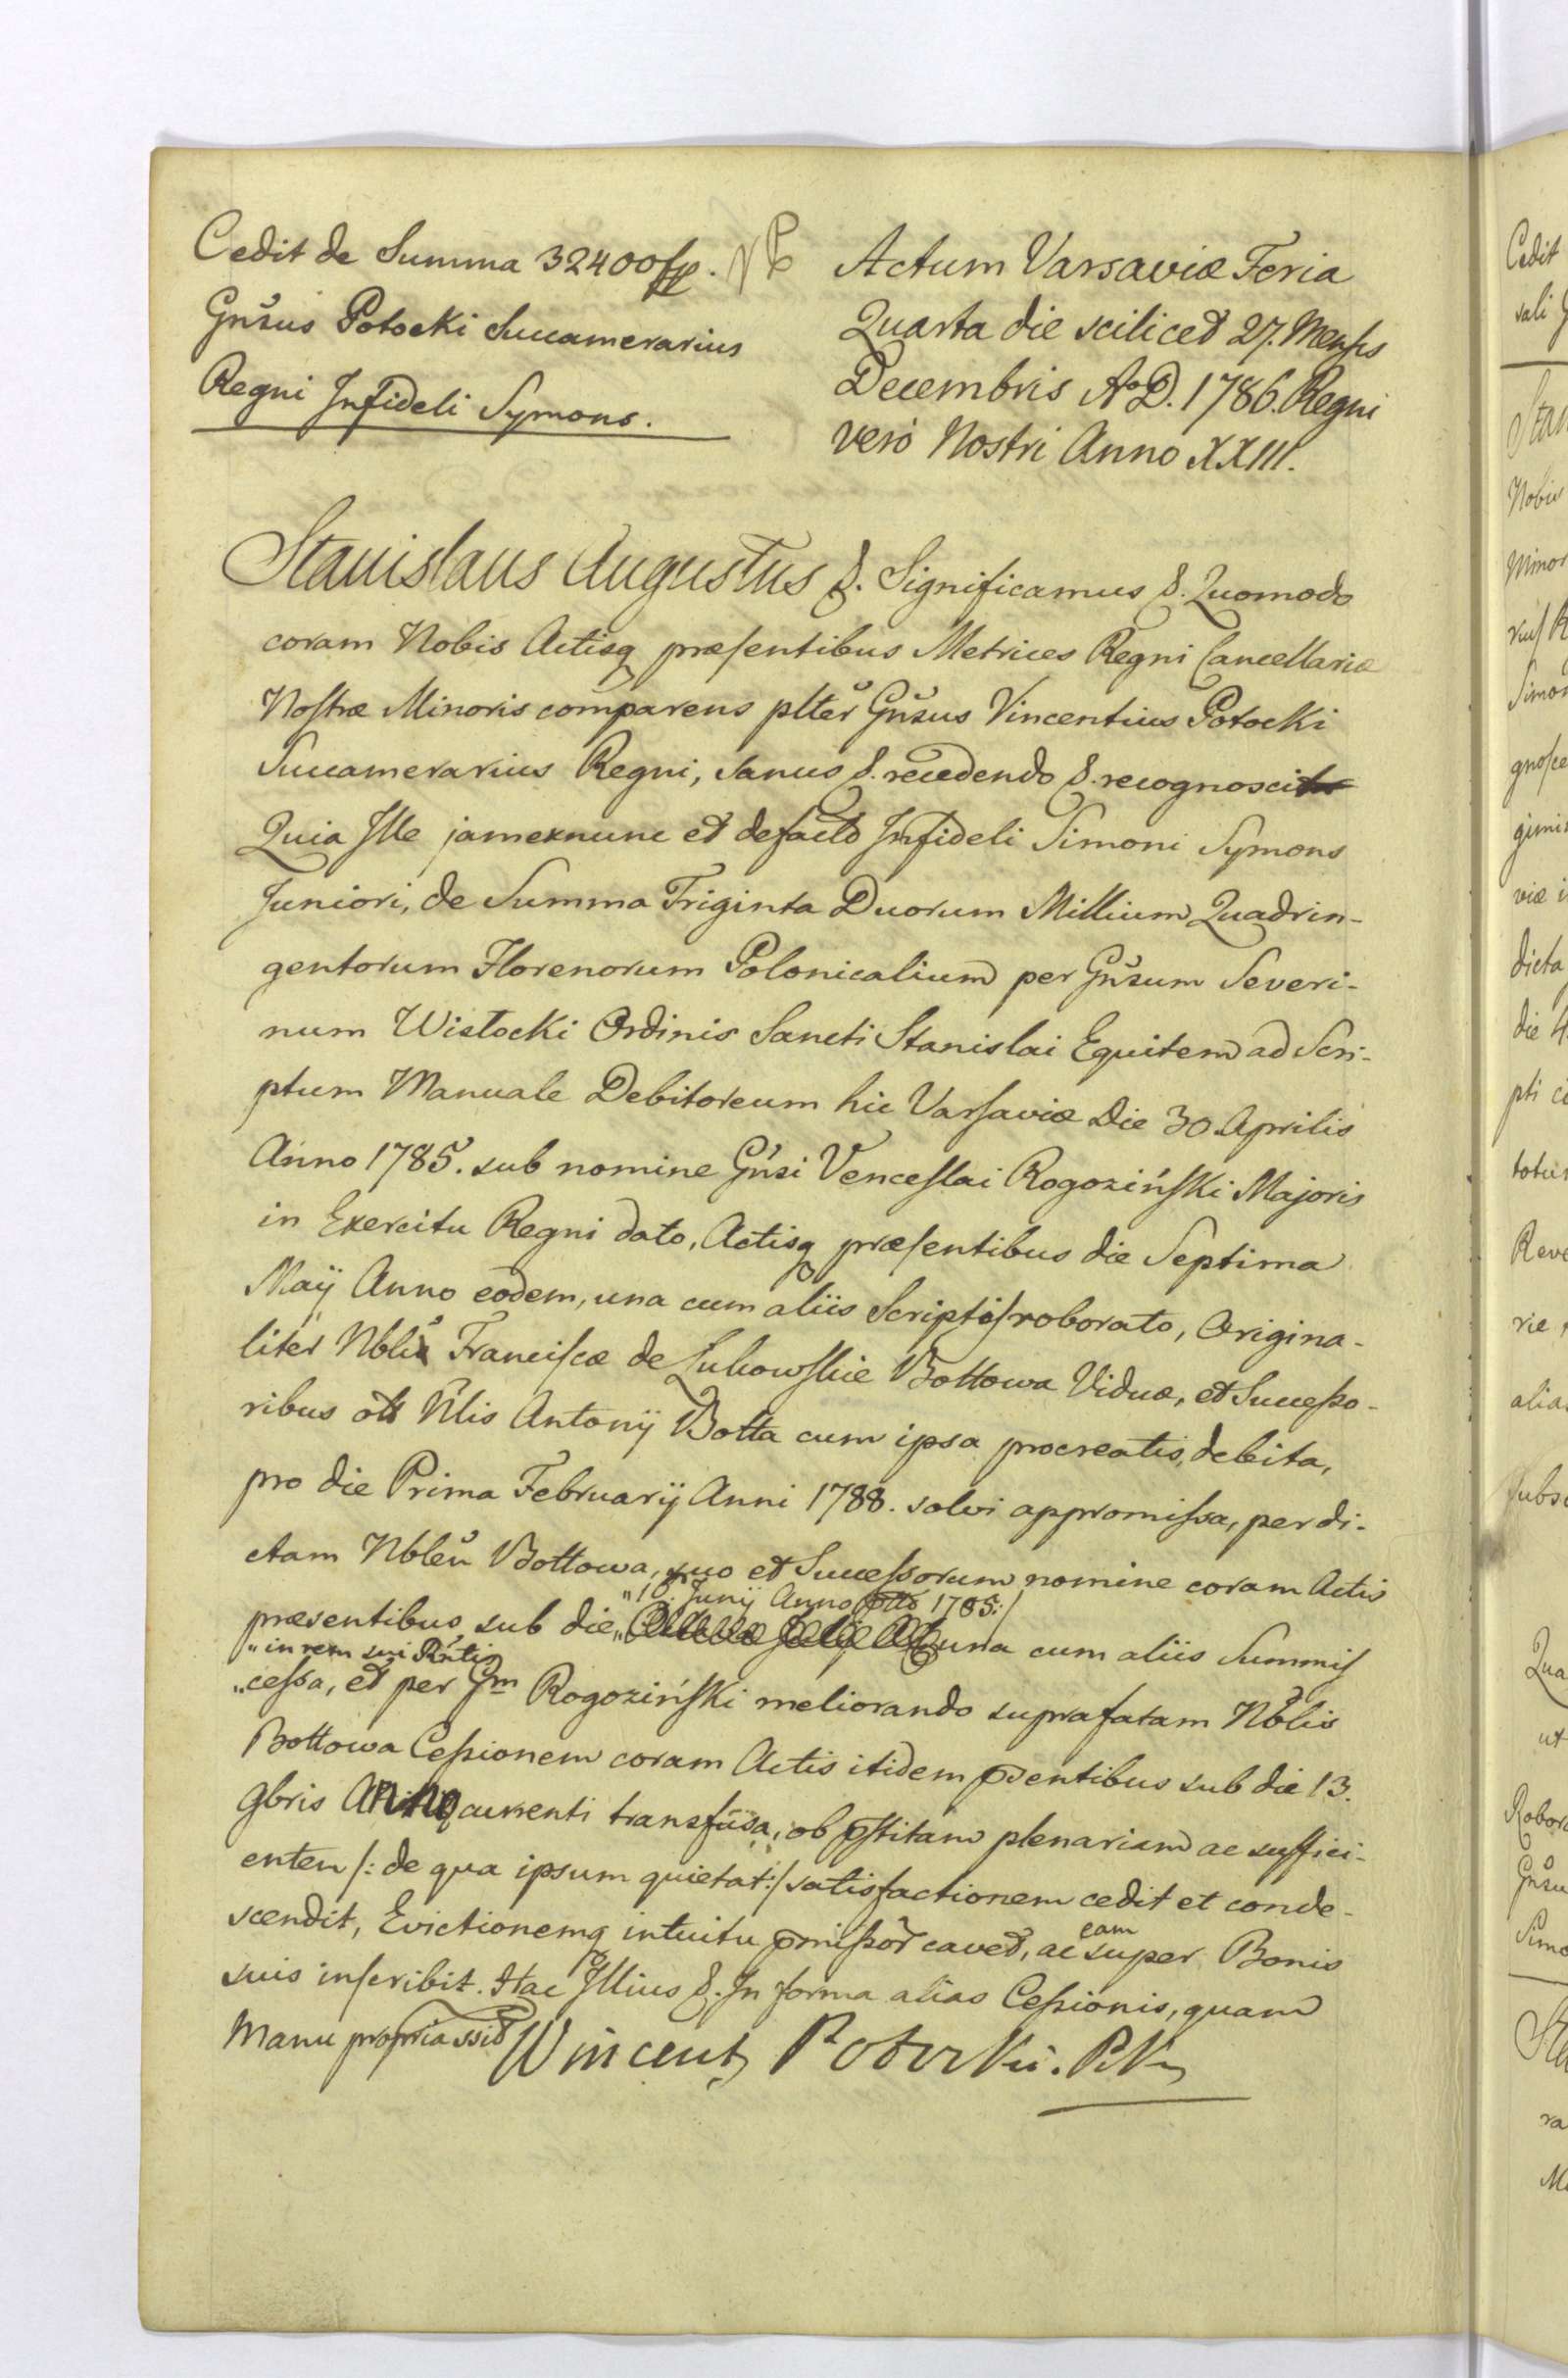 Cedit de Summa 32400 fl.
Gnsus Potocki Succamerarius
Regni Infideli Symons.
Actum Varsaviæ Feria
Quarta die scilicet 27. Mensis
Decembris A.D. 1786. Regni
verò Nostri Anno XXIII.
Stanislaus Augustus &. Significamus &. Quomodo
coram Nobis Actisq præsentibus Metrices Regni Cancellariæ
Nostræ Minoris comparens plter Gnsus Vincentius Potocki
Succamerarius Regni, sanus &. recedendo &. recognoscit
Quia Ille jamexnunc et defacto Infideli Simoni Symons
Juniori, de Summa Triginta Duorum Millium Quadrin-
gentorum Florenorum Polonicalium per Gnsum Severi-
num Wisłocki Ordinis Sancti Stanislai Equitem ad Scri-
ptum Manuale Debitoreum hic Varsaviæ Die 30. Aprilis
Anno 1785. sub nomine Gnsi Venceslai Rogoziński Majoris
in Exercitu Regni dato, Actisq præsentibus die Septima
Maÿ Anno eodem, una cum aliis Scriptis roborato, Origina-
liter Nbli Franciscæ de Lukowskie Bottowa Viduæ, et Successo-
ribus olt Nlis Antonÿ Botta cum ipsa procreatis, debita,
pro die Prima Februarÿ Anni 1788. solvi appromissa, per di-
ctam Nblem Bottowa, suo et Successorum nomine coram Actis
"16. Junÿ Anno 1785.
præsentibus sub die, una cum aliis Summis
"in rem sui Rntis
"cessa, et per Gm Rogoziński meliorando suprafatam Nblis
Bottowa Cessionem coram Actis itidem psentibus sub die 13.
9bris Anno currenti transfusa, ob pstitam plenariam ac suffici-
entem /: de qua ipsum quietat :/ satisfactionem cedit et conde-
scendit, Evictionemq intuitu pmissor cavet, ac eam super Bonis
suis inscribit. Hac Illius &. In forma alias Cessionis, quam
Manu propria ssit Wincenty Potocki. PK